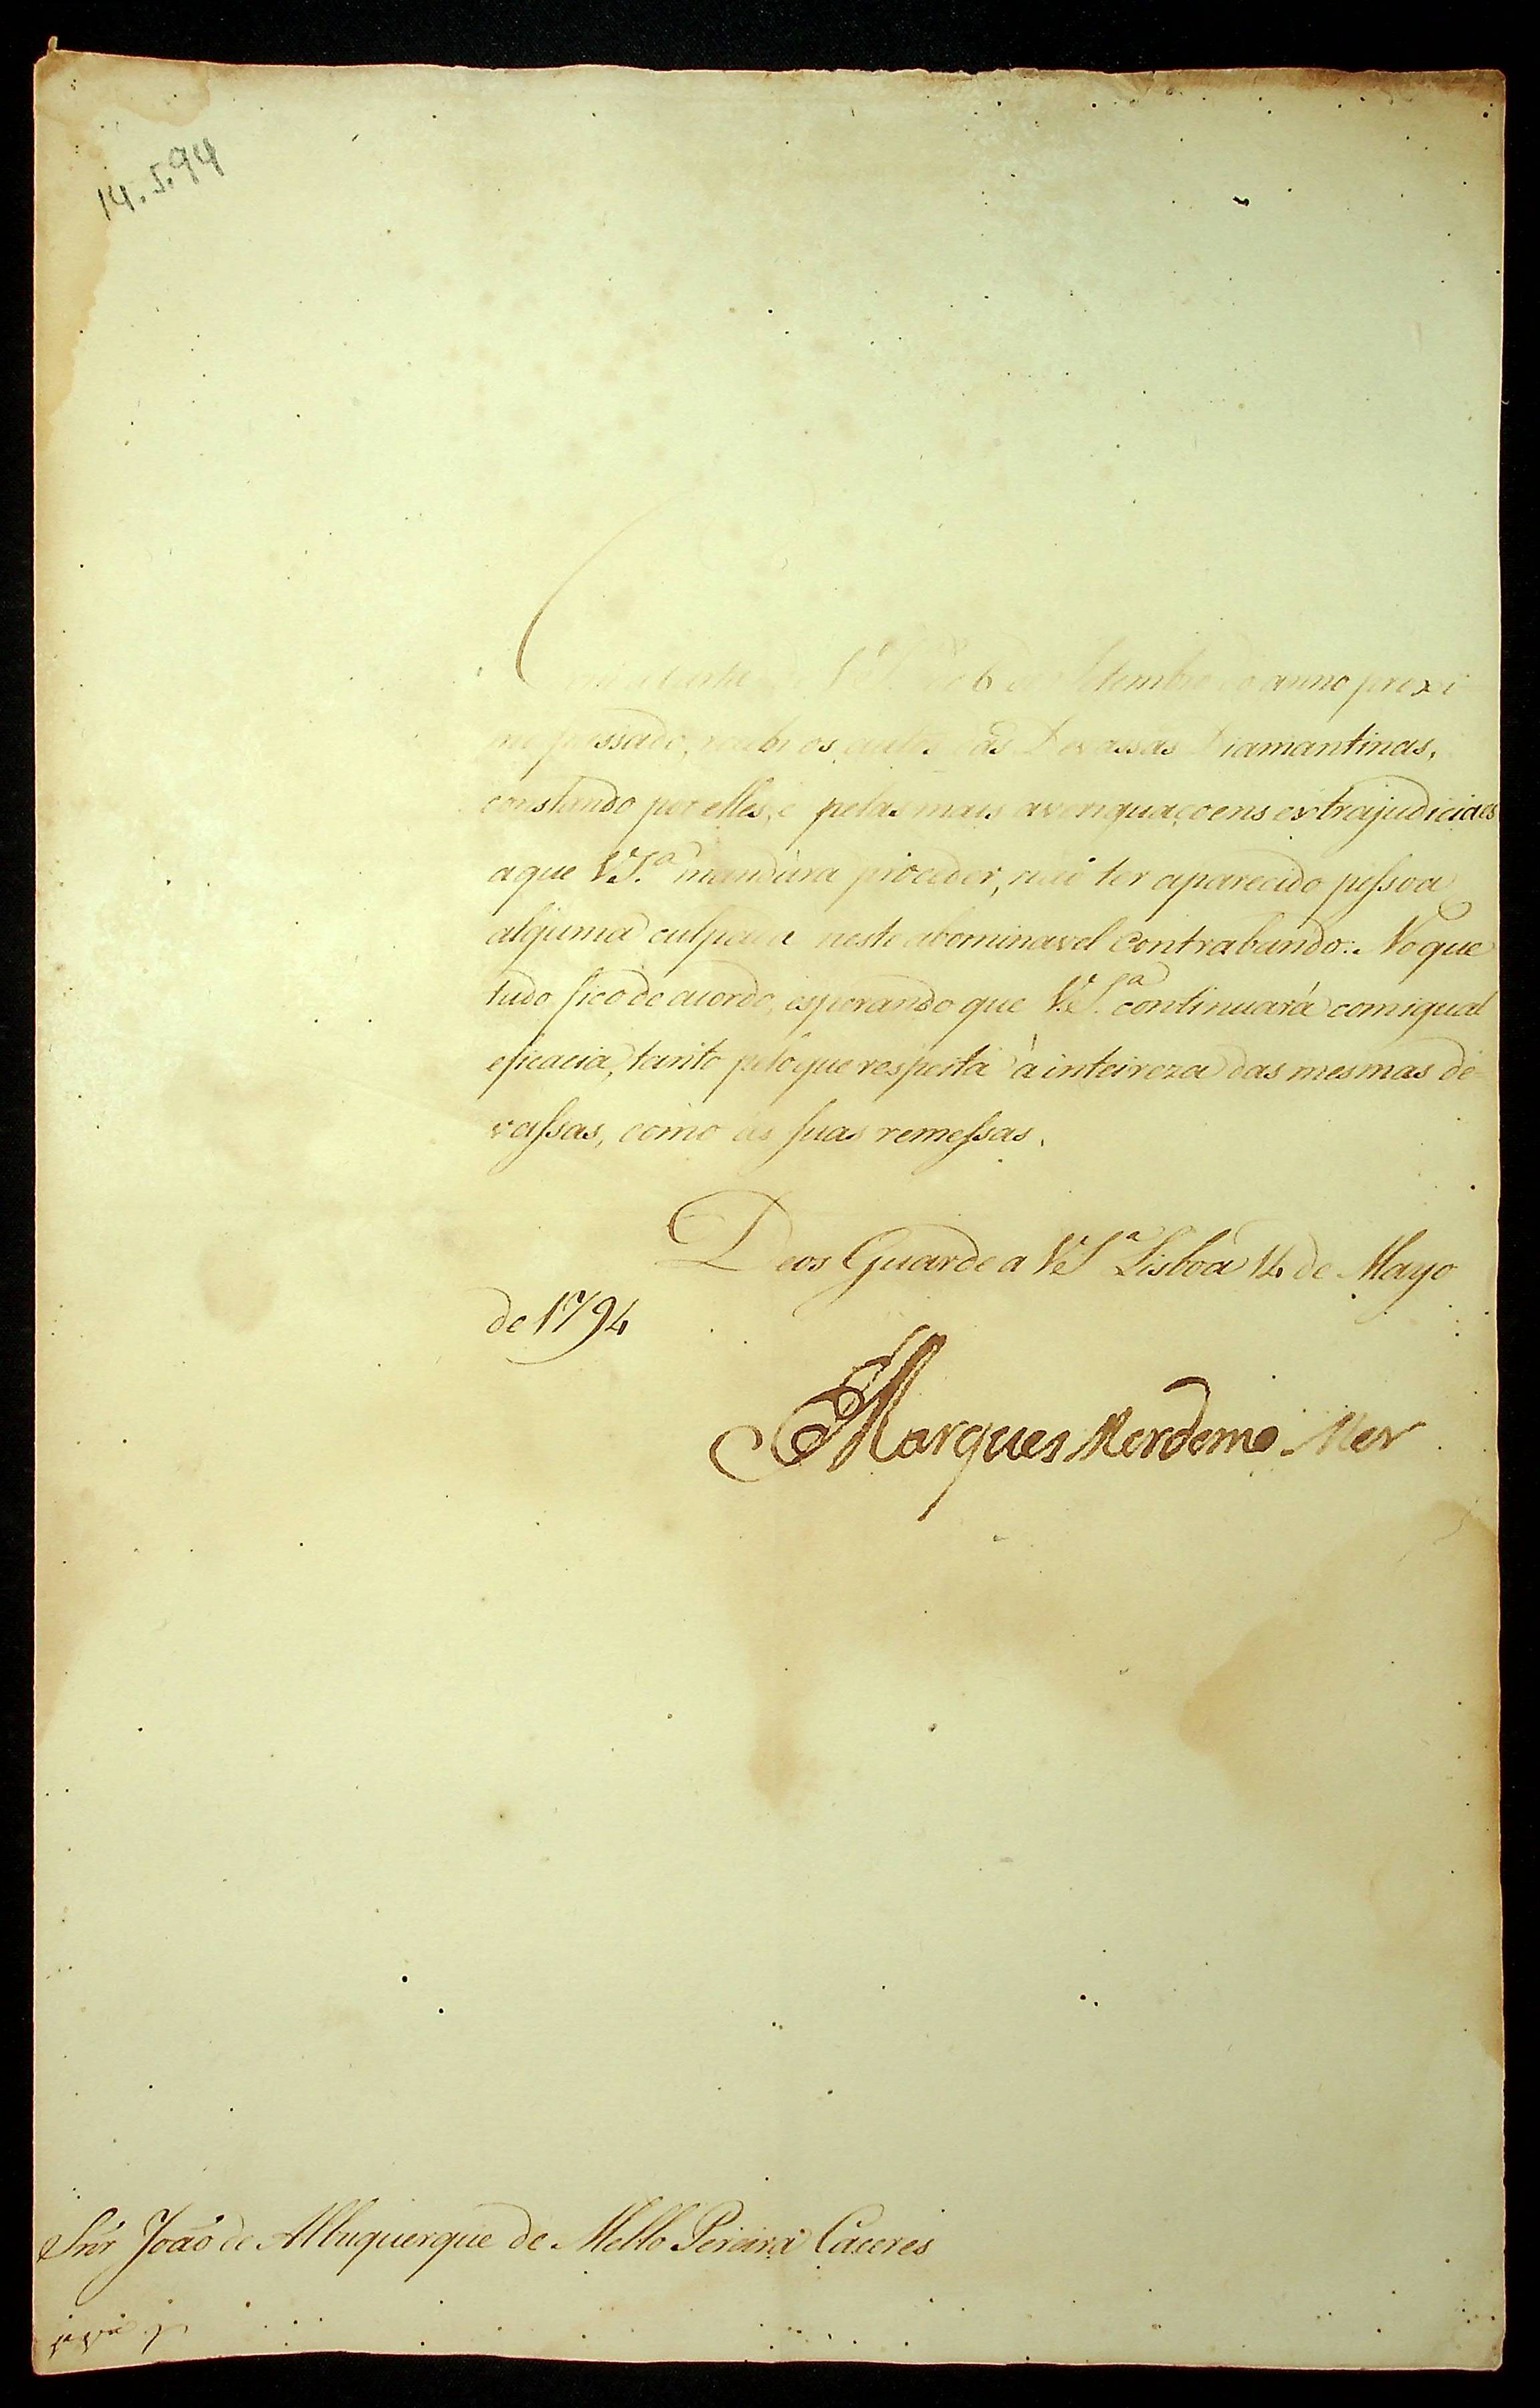 14.5.94
Com a Carta de V.S.ª de 6 de Setembro do anno proxi
mo passado, recebi os autos das Devassas Diamantinas,
constando por elles, e pelas mais averiguaçoens extrajudiciaes
a que V.S.ª mandára proceder, não ter aparecido peſsoa
alguma culpada neste abominavel Contrabando: No que
tudo fico de acordo, esperando que V.S.ª continuará com igual
eficacia, tanto pelo que respeita á inteireza das mesmas de-
vaſsas, como ás suas remeſsas.
Deos Guarde a V.S.ª Lisboa 14 de Mayo
de 1794
Marques Mordomo Mor
Snr. João de Albuquerque de Mello Pereira Caceres